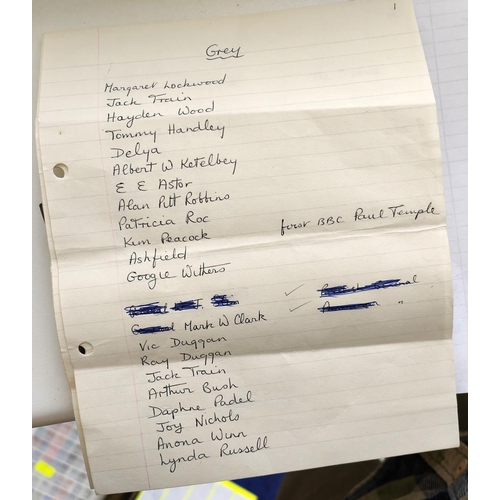 1
Grey
Margaret Lockwood
Jack Train
Hayden Wood
Tommy Handley
Delya
Albert W Ketelbey
E E Astor
Alan Pitt Robbins
Patricia Roc
Kim Peacock first BBC Paul Temple
Ashfield
Googie Withers
Mark W Clark "
Vic Duggan
Ray Duggan
Jack Train
Arthur Bush
Daphne Padel
Joy Nichols
Anona Winn
Lynda Russell